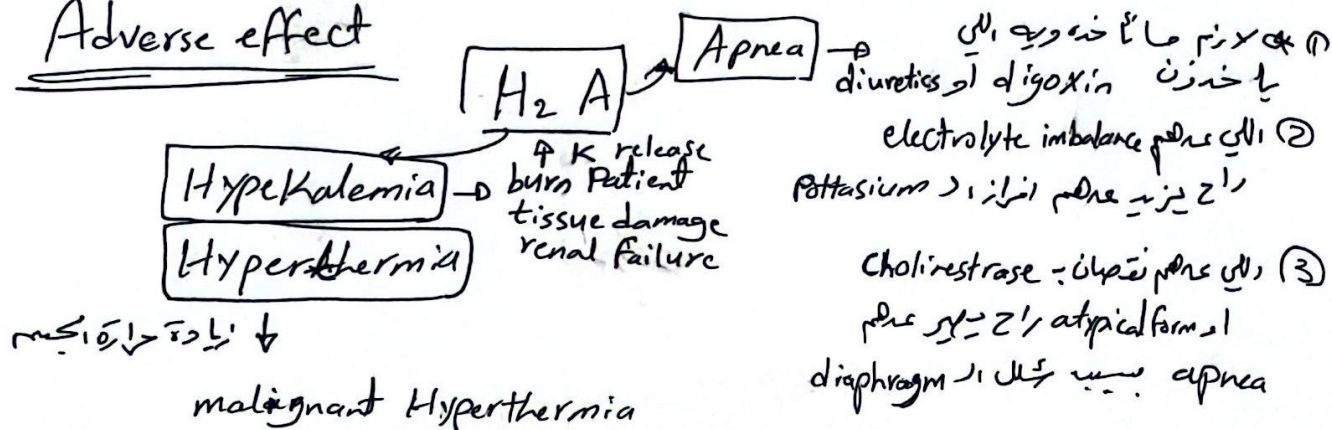 Adverse effect
H₂ A
Apnea →
Hypekalemia →
↑ K release
burn Patient
tissue damage
renal failure
Hyperthermia
↓ زيادة حرارة الجسم
malignant Hyperthermia
① * لازم ما تأخذه ويه اللي
ياخذون digoxin او diuretics
② اللي عدهم electrolyte imbalance
راح يزيد عدهم افراز الـ Pottasium
③ واللي عدهم نقصان بـ Cholinestrase
او atypical form راح يصير عدهم
apnea بسبب شلل الـ diaphragm